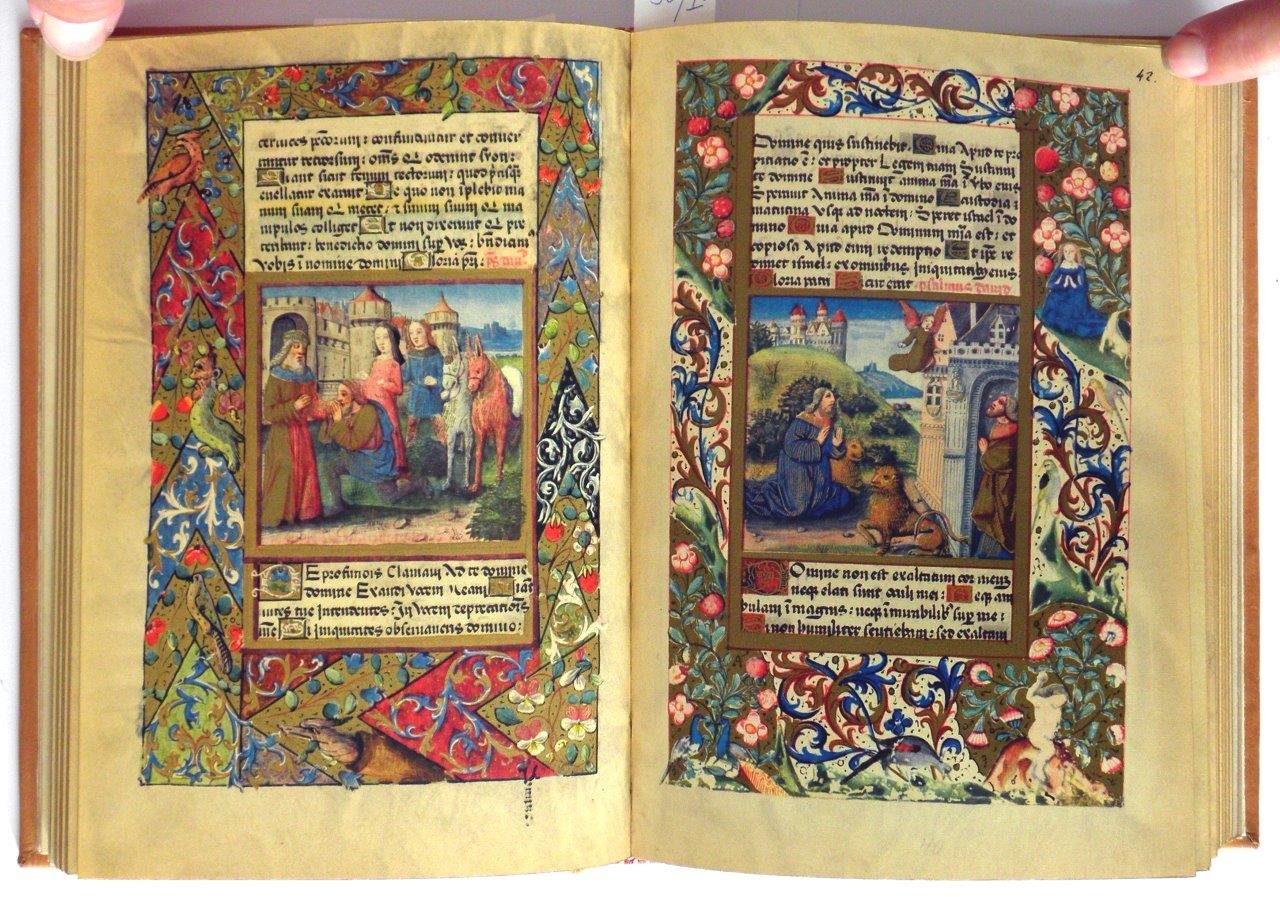 ceruices pctorum: confundantur et conuer
tantur retrorsum: oms qui oderunt syon:
Fiant sicut fenum tectorum: quod priusq
euellatur exaruit De quo non ipleuit ma
num suam qui metet: et sinum suum qui ma
nipulos colliget Et non dixerunt qui pre
teribant: benedictio domini sup vos: bndixim
vobis i nomine domini Gloria pri:
De profundis Clamaui Ad te domine
domine Exaudi vocem meam Fiant
aures tue Intendentes: In vocem deprecationis
mee Si iniquitates obseruaueris domine:
42.
Domine quis sustinebit. Quia Apud te pro
piciatio e: et propter Legem tuam Sustinui
te domine Sustinuit anima ma i vbo eius
Sperauit Anima ma i domino A custodia
matutina vsqs ad noctem: Speret israel i do
mino Quia apud Dominum mia est: et
copiosa Apud eum redemptio Et ipse re
dimet israel: ex omnibus iniquitatibus eius
Gloria patri Sicut erat psalmus dauid
Domine non est exaltatum cor meum
neqs elati sunt oculi mei: Neqs am
bulaui i magnis: neqs i mirabilib sup me:
Si non humiliter sentiebam: sed exaltaui